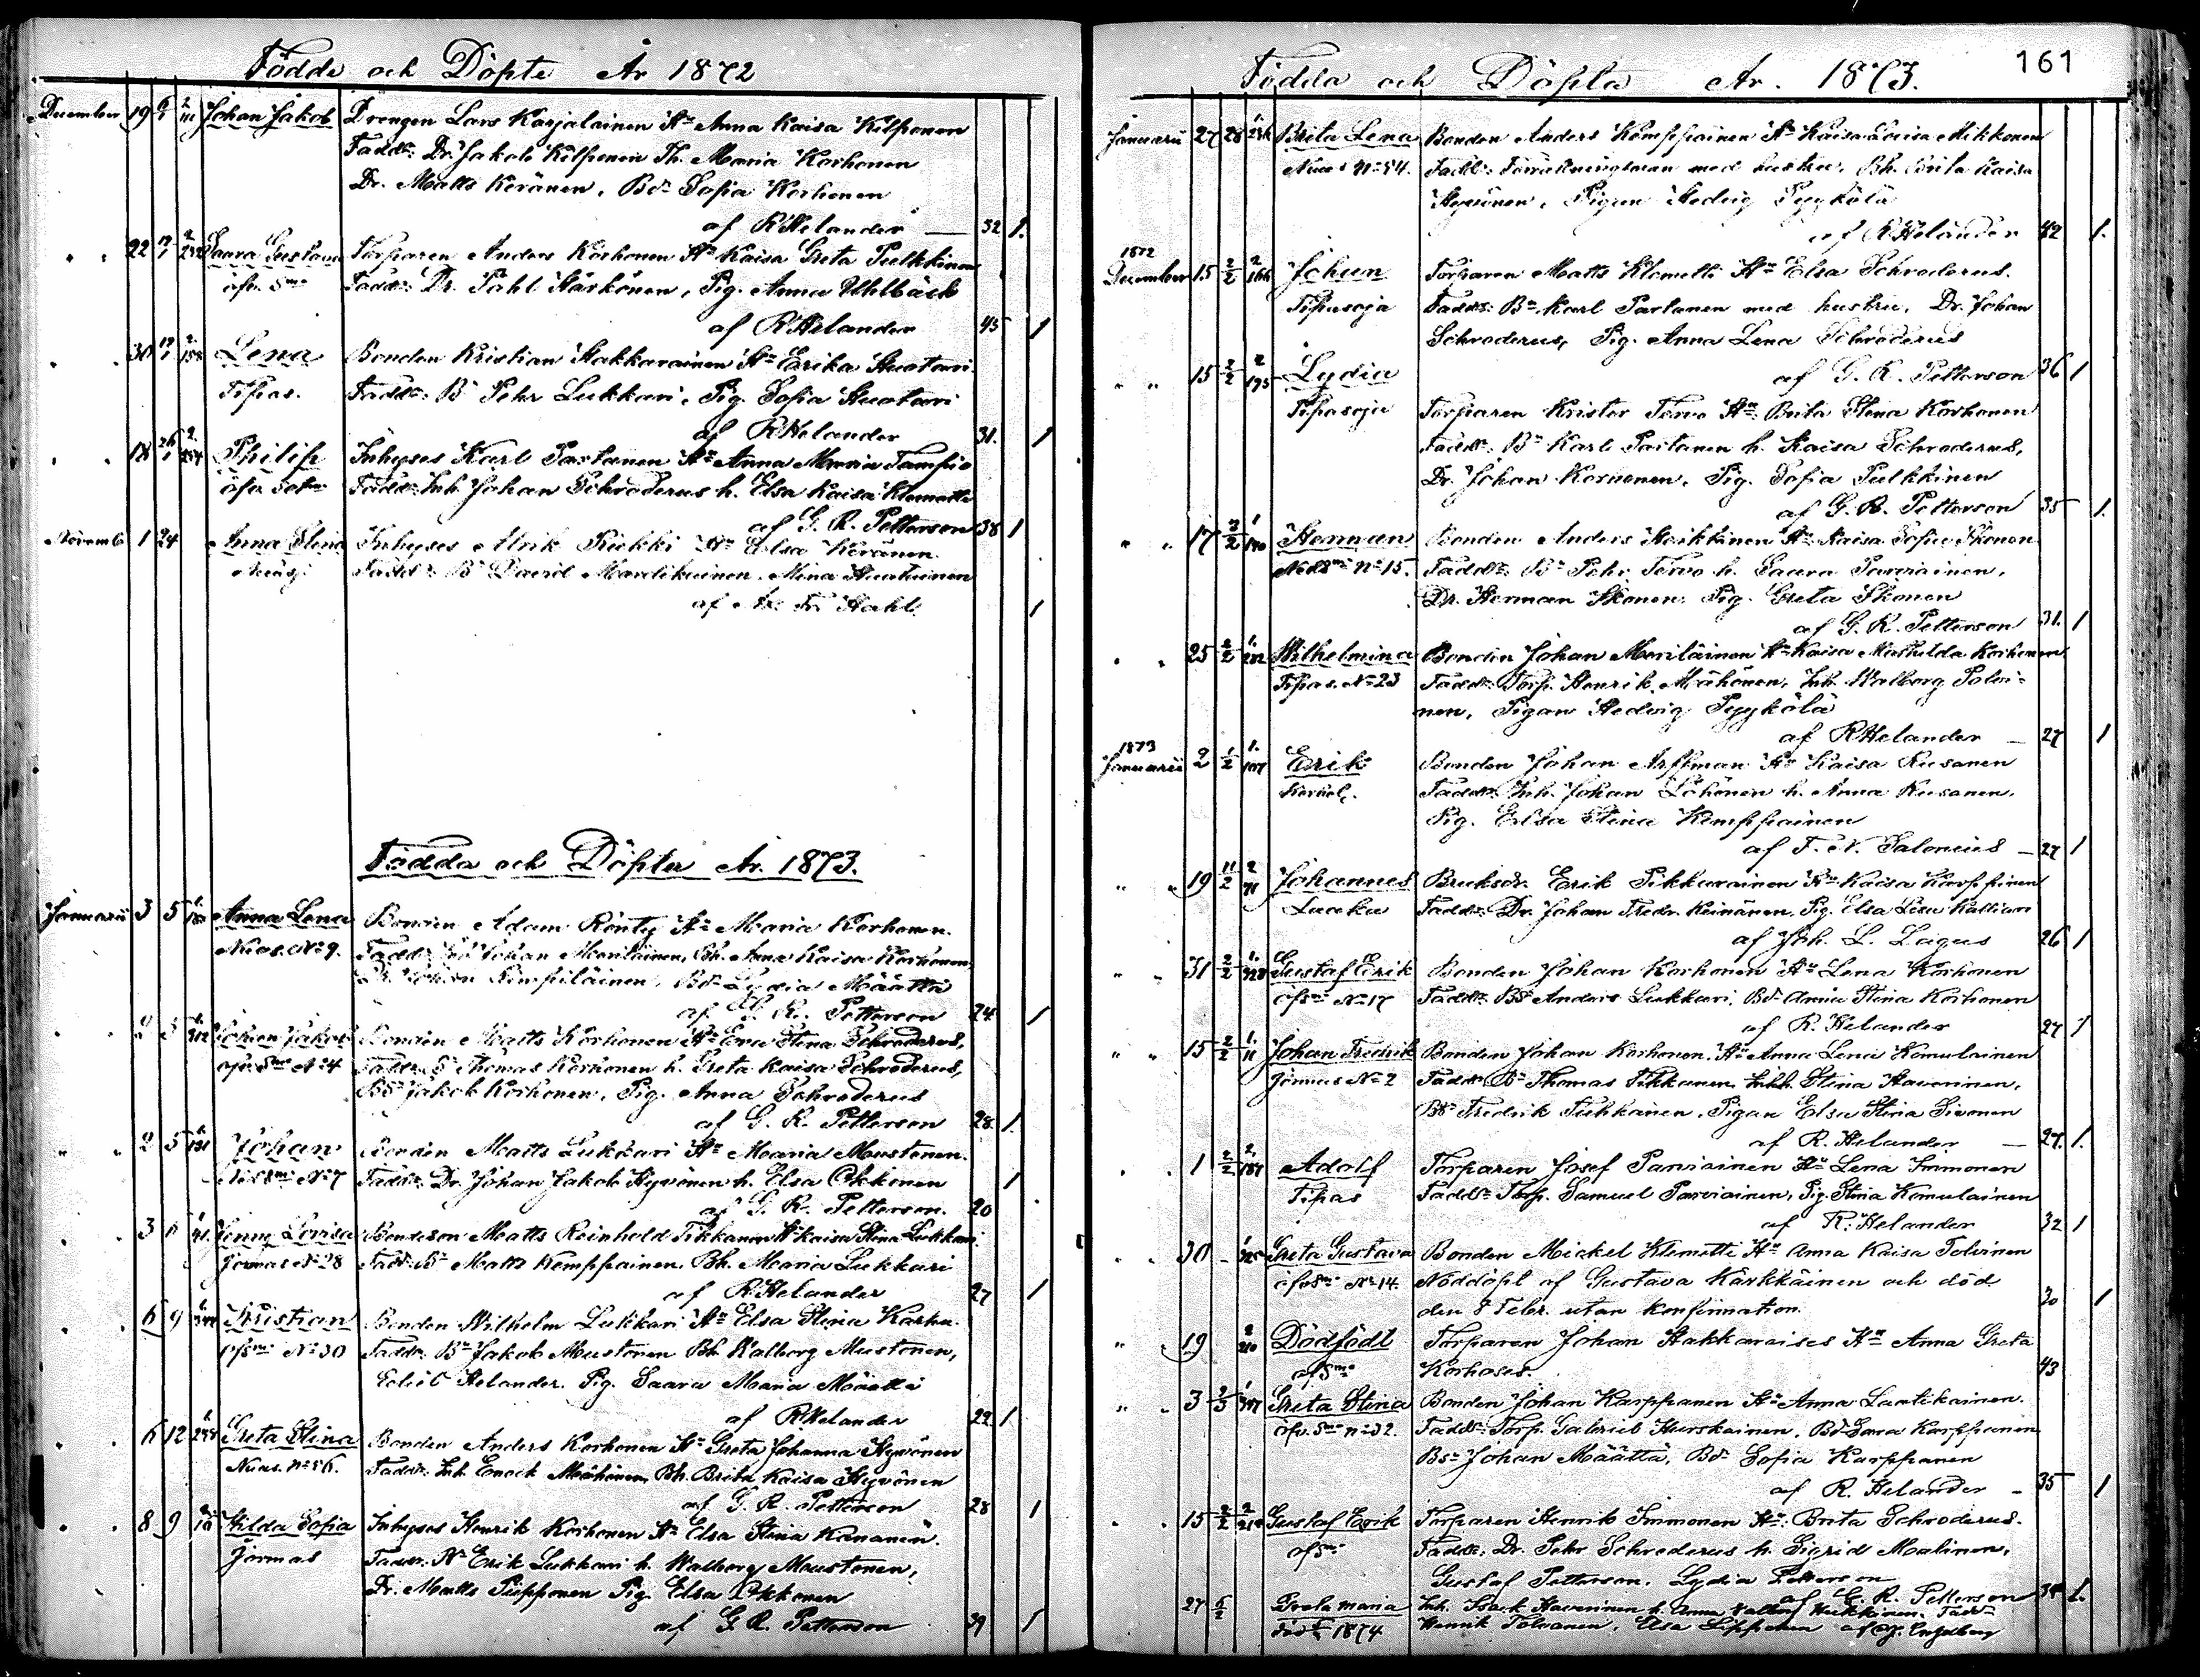 Födde och Döpte År 1872
December 19 Johan Jakob Drengen Lars Karjalainen Hu Anna Kaisa Kilponen
Fadd: Dr. Jakob Kilponen Th. Maria Korhonen
Dr. Matts Keränen, Bd. Sofia Korhonen
af R Helander 32 1.
22 Saara Gustava Torparen Anders Korhonen Hu Kaisa Greta Pulkkinen
Fadd: Dr. Påhl Härkönen, Pig. Anna Uhlbäck
af R Helander 45 1
30 Lena Bonden Kristian Hakkarainen Hu Erika Huotari
Tipas. Fadd: B. Pehr Lukkari, Pig. Sofia Huotari
af R Helander 31. 1
18 Philip Inhyses Karl Partanen Hu Anna Maria Tampio
Fadd: Inh. Johan Schroderus h. Elsa Kaisa Klemetti
af G. R. Petterson 38 1
Novemb 1 24 Anna Stina Inhyses Alrik Piekki Hu Elsa Keränen
Fadd: B. David Mardikainen, Mina Huotarinen
af Hahl. 1
Födda och Döpta År. 1873.
Januarii 3 5 Anna Lena Bonden Adam Rönty Hu Maria Korhonen.
Nuas. No 9. Fadd: Johan Meriläinen, Bh. Anna Kaisa Korhonen,
Kempiläinen, Bd. Lydia Määttä
af G. R. Petterson 24 1
2 5 Johan Jakob Bonden Matts Korhonen Hu Eva Stina Schroderus,
No 4 Fadd: B. Thomas Korhonen h. Greta Kaisa Schroderus,
Bs. Jakob Korhonen, Pig. Anna Schroderus
af G. R. Petterson 28. 1.
2 5 Johan Bonden Matts Lukkari Hu Maria Mustonen.
No 7 Fadd: Dr. Johan Jakob Hyvönen h. Elsa Okkonen 1
af G. R. Petterson. 20
3 6 Jenny Lovisa Bondeson Matts Reinhold Tikkanen Hu Kaisa Stina Lukkari
Jormas No 28 Fadd: B. Matts Kemppainen, Bh. Maria Lukkari
af R Helander 27 1
6 9 Kristian Bonden Wilhelm Lukkari Hu Elsa Stina Karhu.
No 30 Fadd: Bn Jakob Mustonen Bh. Walborg Mustonen,
Helander. Pig. Saara Maria Määttä
af R Helander 22 1
6 12 Greta Stina Bonden Anders Korhonen Hu Greta Johanna Hyvönen
Nuas. No 56. Fadd: Inh. Enock Mähönen, Bh. Brita Kaisa Hyvönen
af G. R. Petterson 28 1
8 9 Hilda Sofia Inhyses Henrik Korhonen Hu Elsa Stina Kananen.
Jormas Fadd: Erik Lukkari h. Walborg Moustonen,
Dr. Matts Piipponen Pig. Elsa Okkonen
af G. R. Petterson 39 1
Födda och Döpta År. 1873. 161
Januarii 27 28 Brita Lena Bonden Anders Kemppainen Hu Kaisa Lovisa Mikkonen
Nuas No 54. Fadd: med hustru, Bh. Brita Kaisa
Hyvönen, Pigan Hedvig Pyykölä
af R Helander 42 1.
1872
December 15 2/2 2/166 Johan Torparen Matts Klemetti Hu Elsa Schroderus.
Tipasoja Fadd: Bn Karl Partanen med hustru, Dr. Johan
Schroderus, Pig. Anna Lena Schroderus
af G. R. Petterson 36 1
15 2/2 Lydia
Tipasoja Torparen Krister Tervo Hu Brita Stina Korhonen
Fadd: Bn Karl Partanen h. Kaisa Schroderus,
Dr. Johan Korhonen, Pig. Sofia Pulkkinen
af G. R. Petterson 35 1.
17 2/2 Herman Bonden Anders Heikkinen Hu Kaisa Sofia Ikonen
No 15. Fadd: Bn Pehr Tervo h. Saara Parviainen,
Dr. Herman Ikonen, Pig. Greta Ikonen
af G. R. Petterson 31. 1
25 2/2 Wilhelmina Bonden Johan Meriläinen Hu Kaisa Mathilda Korhonen
Tipas. No 23 Fadd: Torp. Henrik Mähönen, Inh. Walborg Polvi-
nen, Pigan Hedvig Pyykölä
af R Helander 27 1
1873
Januarii 2 1/2 1/107 Erik Bonden Johan Arffman Hu Kaisa Kusanen
Fadd: Inh. Johan Löhönen h. Anna Kusanen,
Pig. Elsa Stina Kemppainen
af F. N. Salonius 27 1
19 11/2 2/71 Johannes Bruksdr. Erik Pikkarainen Hu Kaisa Karppinen
Laaka Fadd: Dr. Johan Fredr. Keinänen, Pig. Elsa Lisa
af Joh. L. Lagus 26 1
31 2/2 Gustaf Erik Bonden Johan Korhonen Hu Lena Korhonen
No 17 Fadd: Bs Anders Lukkari, Bd. Anna Stina Korhonen
af R. Helander 27 1
15 2/2 1/11 Johan Fredrik Bonden Johan Korhonen, Hu Anna Lena Komulainen
Jormas No 2 Fadd: Bn Thomas Tikkanen, Inhh. Stina Haverinen,
Bs Fredrik Tuhkanen, Pigan Elsa Stina Sivonen
af R. Helander 27. 1.
1 2/2 2/187 Adolf Torparen Josef Parviainen Hu Lena Immonen
Tipas Fadd: Torp. Samuel Parviainen, Pig. Stina Komulainen
af R. Helander 32 1
30 Greta Gustava Bonden Mickel Klemetti Hu Anna Kaisa Tolvinen
No 14. Nöddöpt af Gustava Kärkkäinen och död
den 8 Febr. utan konfirmation. 30 1
19 Dödfödt Torparen Johan Hakkaraises Hu Anna Greta
Korhoses. 43
3 2/3 Greta Stina Bonden Johan Karppanen Hu Anna Laatikainen.
No 32. Fadd: Torp. Gabriel Hurskainen, Bd. Sara Karppanen
Bs Johan Määttä, Bd. Sofia Karppanen
af R. Helander 35 1
15 2/2 Gustaf Erik Torparen Henrik Immonen Hu Brita Schroderus.
Fadd: Dr. Pehr Schroderus h. Sigrid Malinen,
Gustaf Petterson, Lydia Petterson
af G. R. Petterson 34 1.
27 5/2 Greta Maria Inh. Isak Haverinen h. Anna Walborg Heikkinen. Fadd:
1874 Henrik Tolvanen, Elsa Lipponen af Engelberg